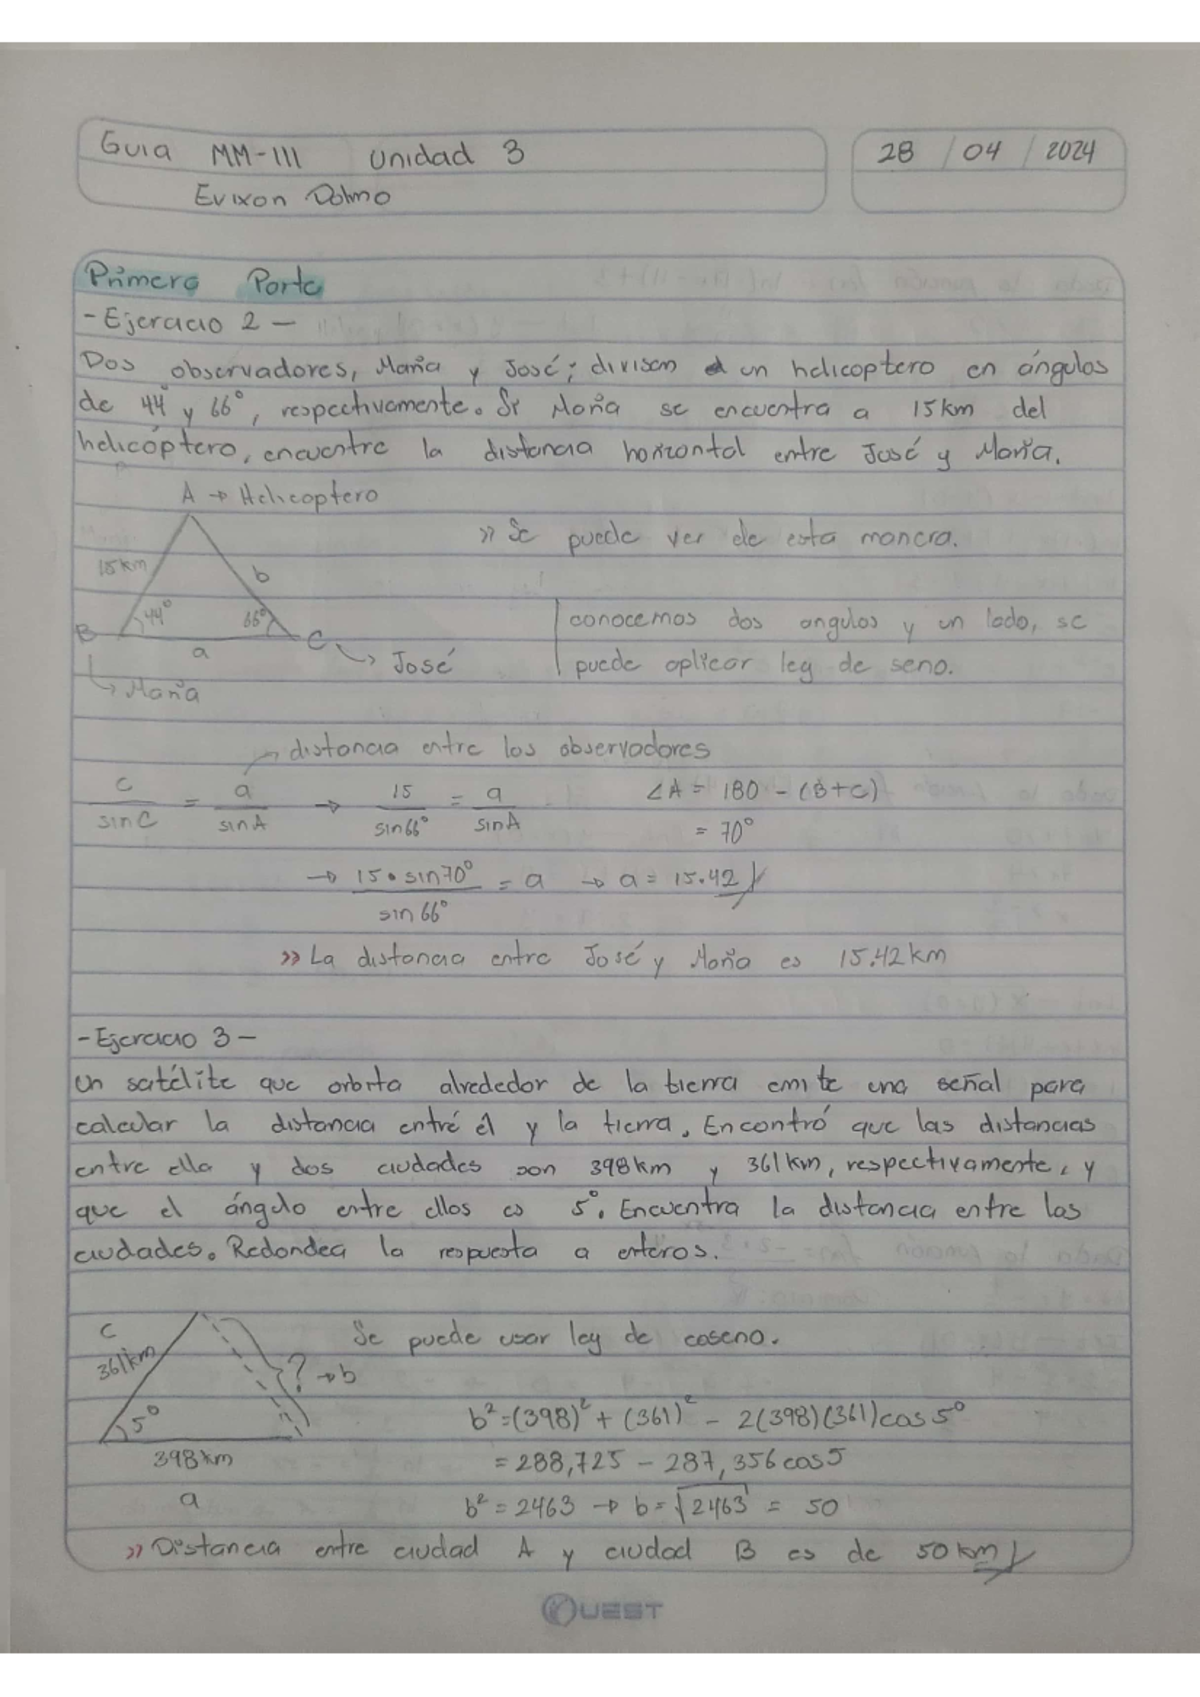 Guia MM-III Unidad 3
28 / 04 / 2024
Evixon Dolmo
Primera Parte
- Ejercicio 2 -
Dos observadores, María y José; divisan un helicoptero en ángulos
de 44° y 66°, respectivamente. Si María se encuentra a 15km del
helicóptero, encuentre la distancia horizontal entre José y María.
A → Helicoptero
» Se puede ver de esta manera.
15km
b
44°
66°
B
C
a
→ José
→ María
conocemos dos angulos y un lado, se
puede aplicar ley de seno.
→ distancia entre los observadores
c/sinC = a/sinA → 15/sin66° = a/sinA
∠A = 180 - (B+C)
= 70°
→ 15•sin70°/sin66° = a → a = 15.42
» La distancia entre José y María es 15.42km
- Ejercicio 3 -
Un satélite que orbita alrededor de la tierra emite una señal para
calcular la distancia entré él y la tierra. Encontró que las distancias
entre ella y dos ciudades son 398km y 361km, respectivamente, y
que el ángulo entre ellos es 5°. Encuentra la distancia entre las
ciudades. Redondea la respuesta a enteros.
c
361km
? → b
5°
398km
a
Se puede usar ley de coseno.
b² = (398)² + (361)² - 2(398)(361)cos 5°
= 288,725 - 287,356cos5
b² = 2463 → b = √2463 = 50
» Distancia entre ciudad A y ciudad B es de 50km
QUEST